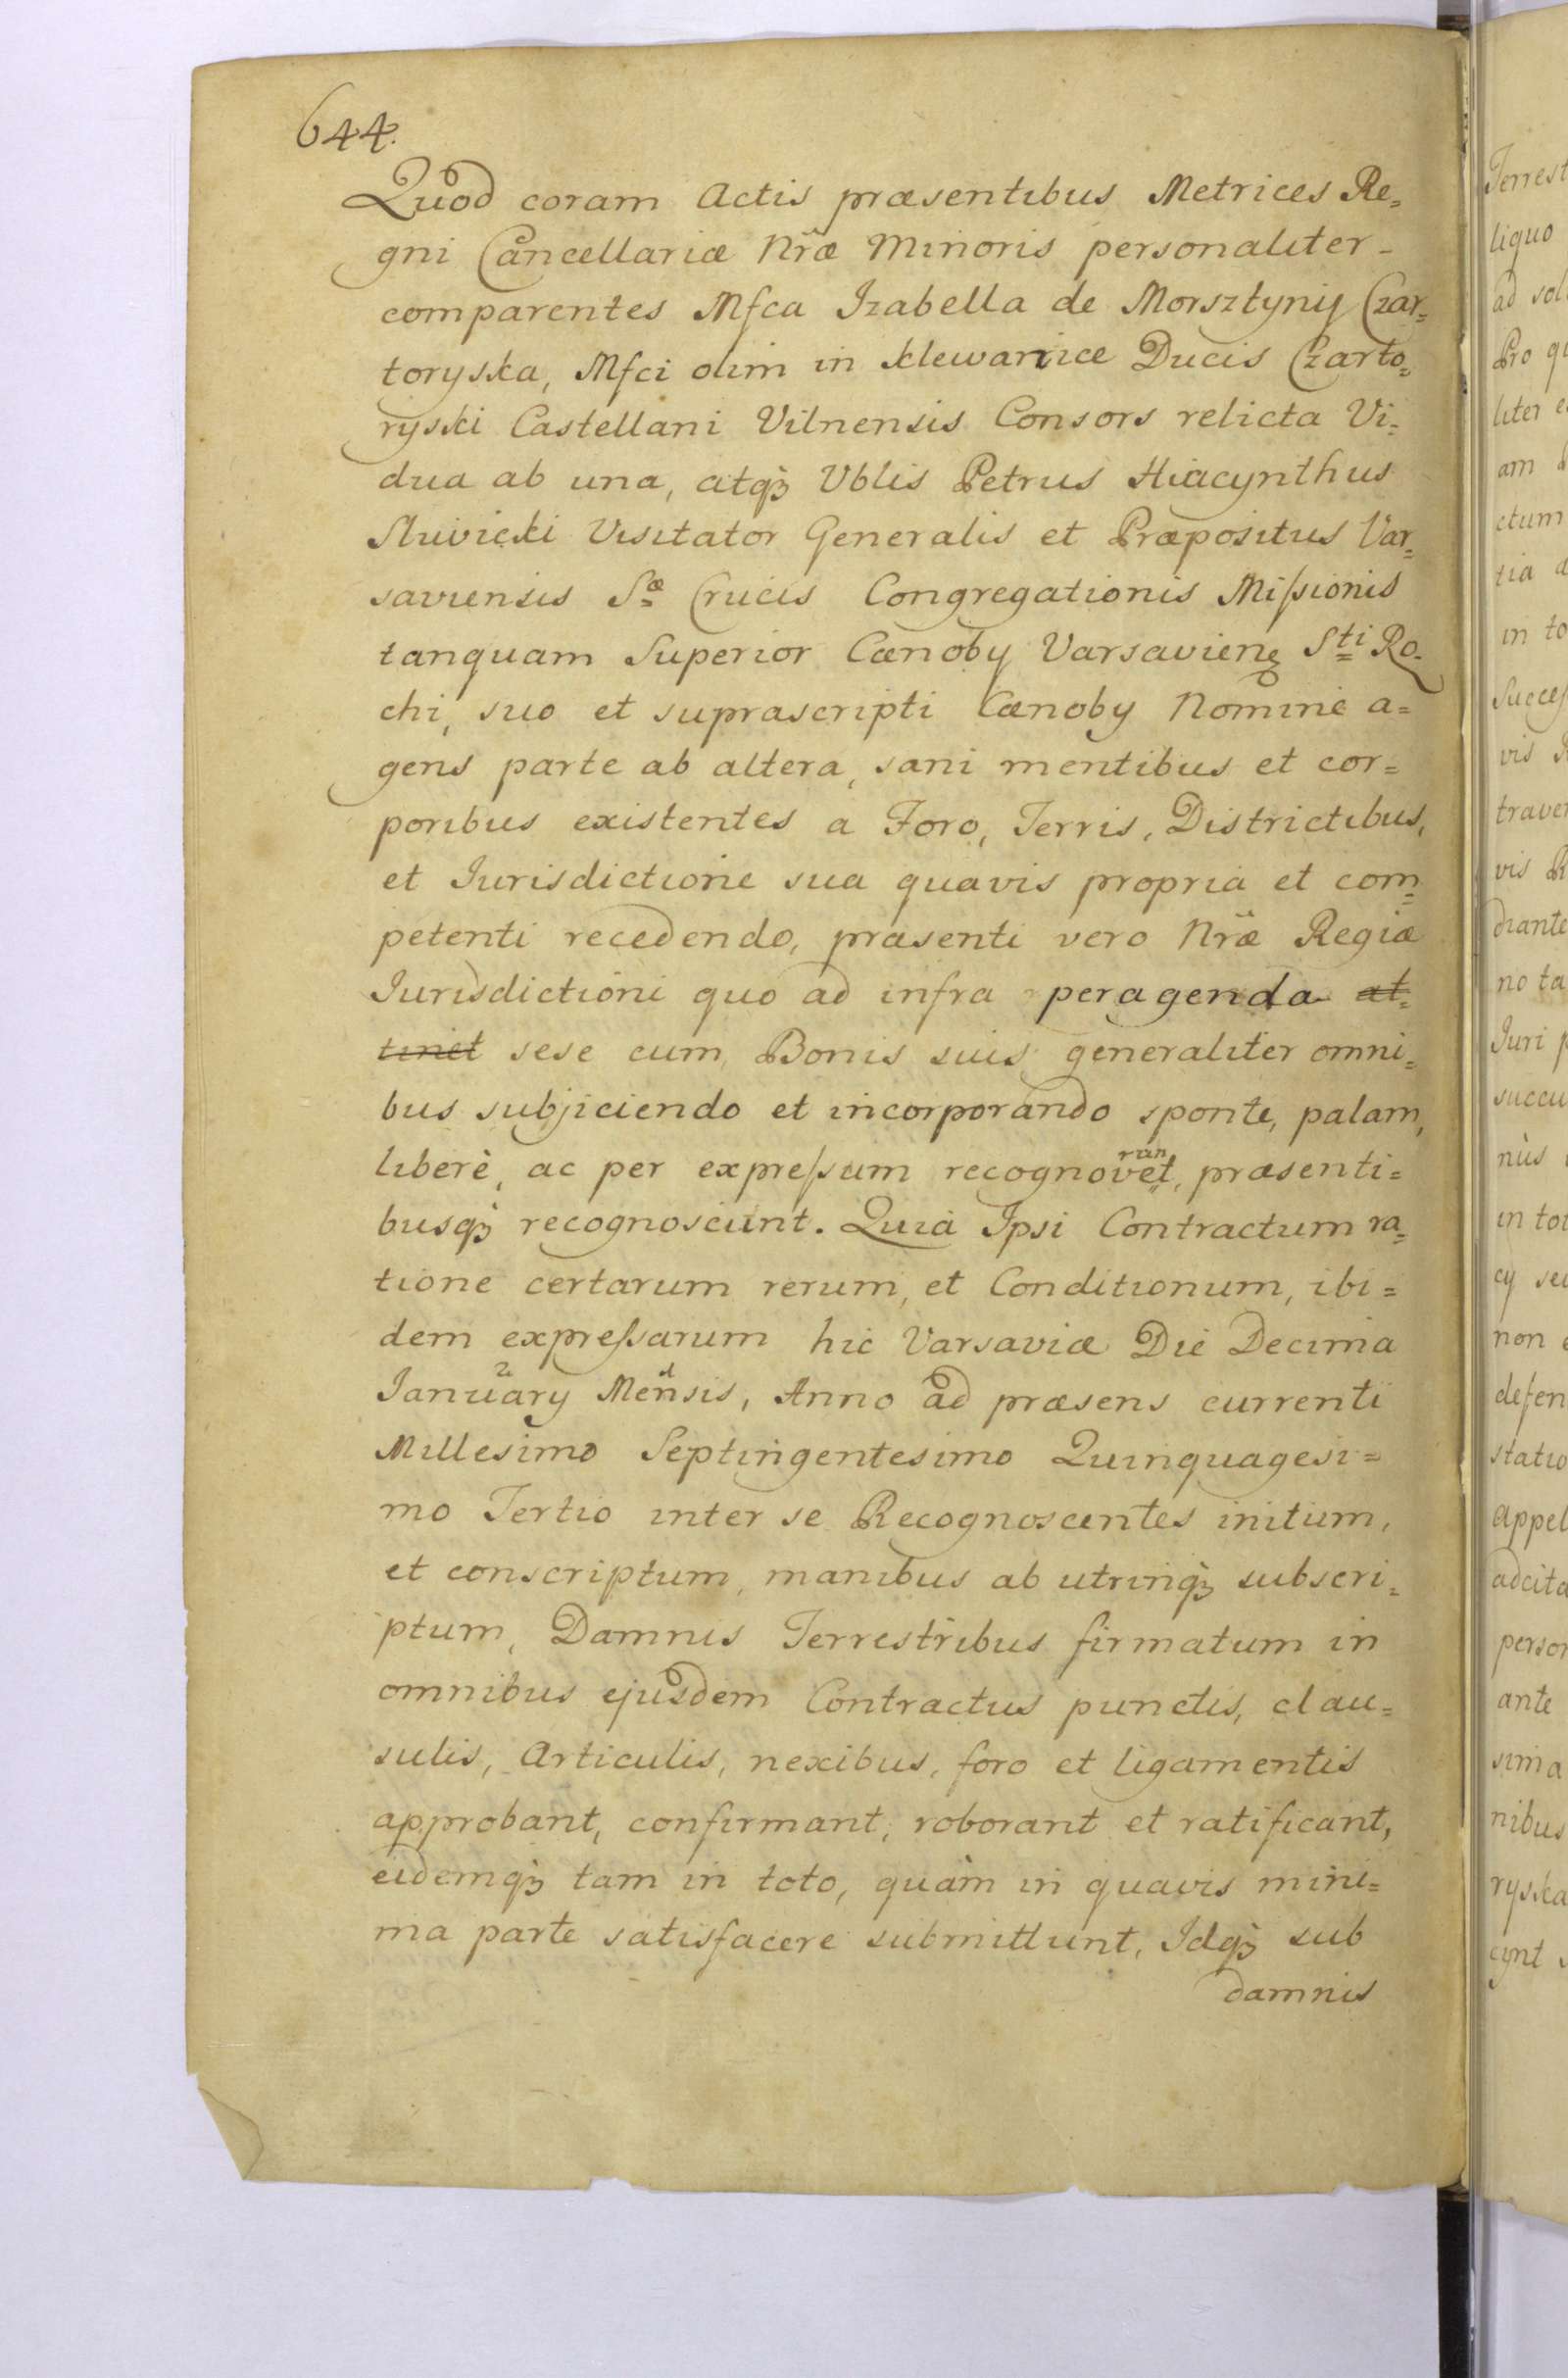 644.
Quod coram Actis præsentibus Metrices Re=
gni Cancellariæ Nr̃æ Minoris personaliter -
comparentes Mfca Izabella de Morsztyny Czar=
toryska, Mfci olim in Klewan ice Ducis Czarto=
ryski Castellani Vilnensis Consors relicta Vi=
dua ab una, atqꝫ Vblis Petrus Hiacynthus
Sluvicki Visitator Generalis et Præpositus Var=
saviensis Sæ Crucis Congregationis Missionis
tanquam Superior Cœnoby Varsavieng Sti Ro-
chi, suo et suprascripti Cœnoby Nomine a=
gens parte ab altera, sani mentibus et cor=
poribus existentes a Foro, Terris, Districtibus,
et Iurisdictione sua quavis propria et com=
petenti recedendo, præsenti vero Nr̃æ Regiæ
Iurisdictioni quo ad infra peragenda at=
tinet sese cum Bonis suis generaliter omni=
bus subjiciendo et incorporando sponte, palam,
liberè, ac per expressum recognovet, præsenti=
run
busqꝫ recognoscunt. Quia Ipsi Contractum ra=
tione certarum rerum, et Conditionum, ibi=
dem expressarum hic Varsaviæ Die Decima
Ianuary Mensis, Anno ad præsens currenti
Millesimo Septingentesimo Quinquagesi=
mo Tertio inter se Recognoscentes initum,
et conscriptum, manibus ab utrinqꝫ subscri=
ptum, Damnis Terrestribus firmatum in
omnibus ejusdem Contractus punctis, clau=
sulis, Articulis, nexibus, foro et ligamentis
approbant, confirmant, roborant et ratificant,
eidemqꝫ tam in toto, quàm in quavis mini=
ma parte satisfacere submittunt, Idqꝫ sub
damnis